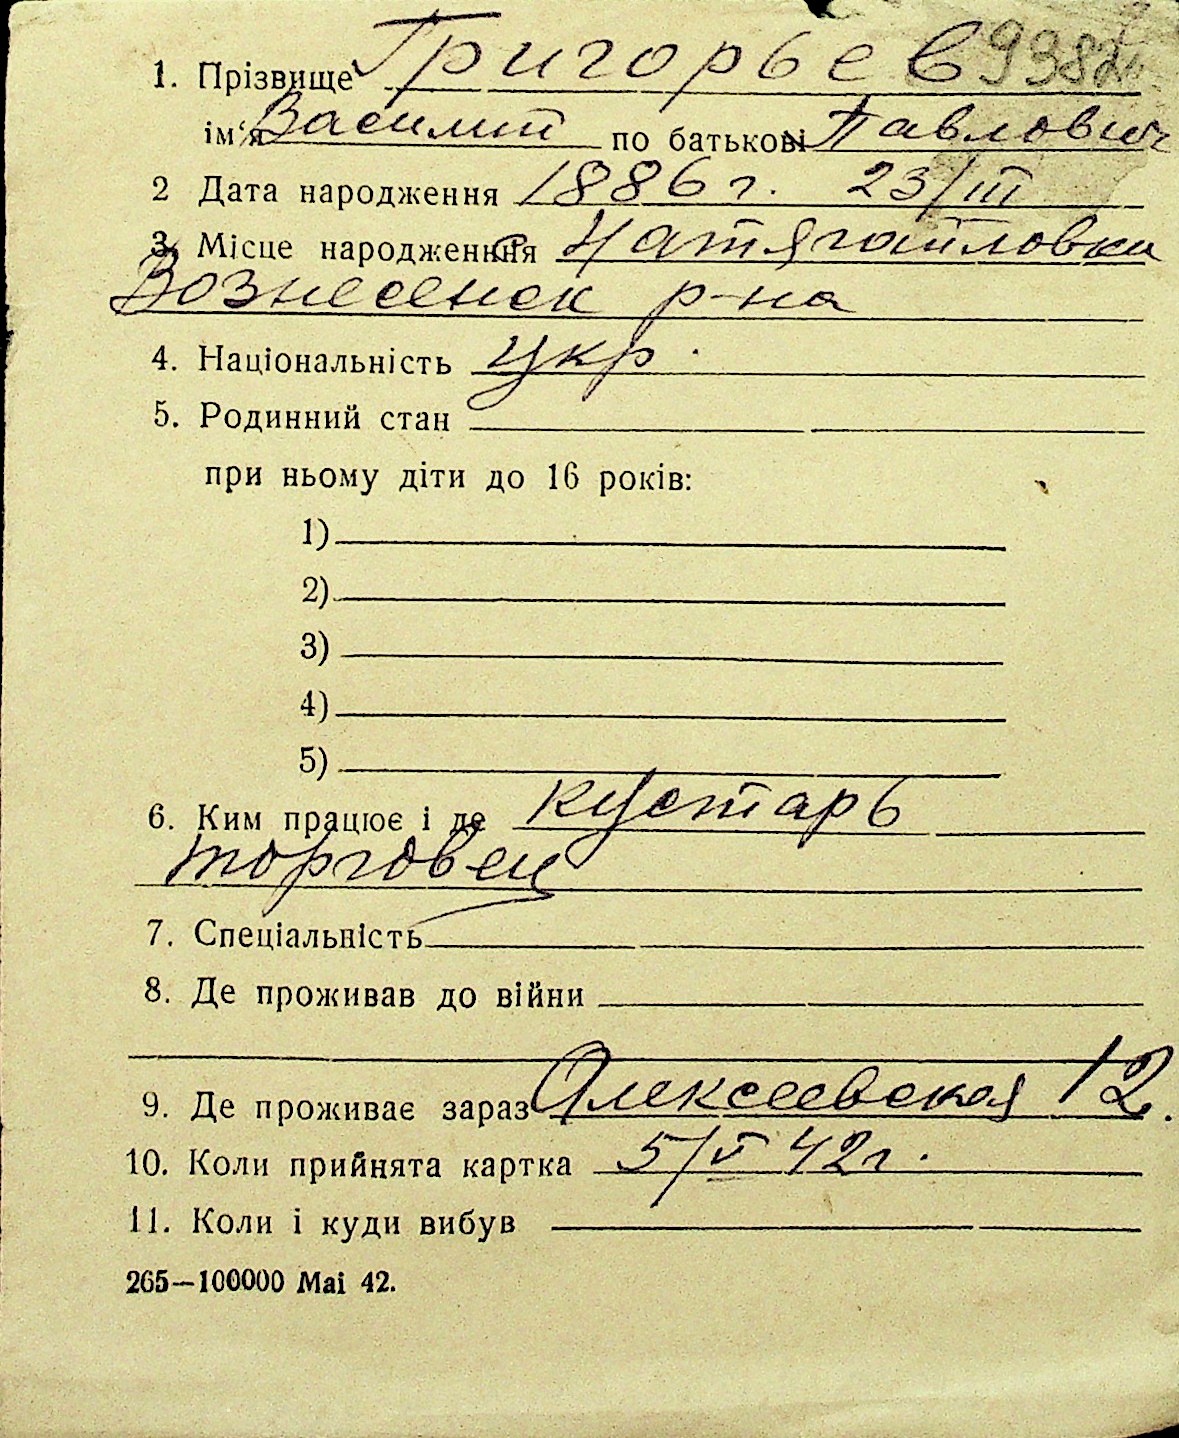 1. Прізвище Григорьев 9382
ім'я Василий по батькові Павлович
2 Дата народження 1886 г. 23/III
3. Місце народження с.
Вознесенск р-на
4. Національність укр.
5. Родинний стан
при ньому діти до 16 років:
1)
2)
3)
4)
5)
6. Ким працює і де кустарь
торговец
7. Спеціальність
8. Де проживав до війни
9. Де проживає зараз Алексеевская 12.
10. Коли прийнята картка 5/VI 42 г.
11. Коли і куди вибув
265—100000 Mai 42.